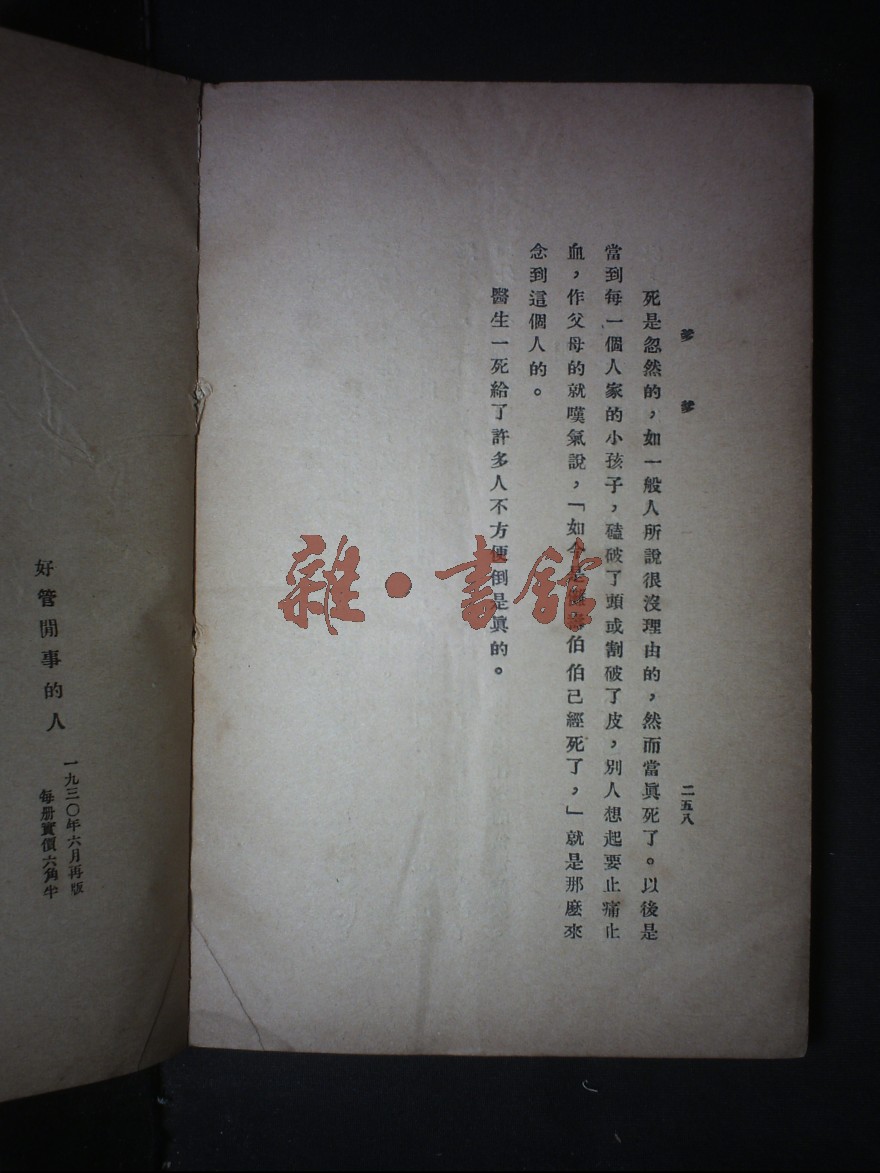 爹爹
二五八
死是忽然的，如一般人所說很沒理由的，然而當眞死了。以後是
當到每一個人家的小孩子，磕破了頭或割破了皮，別人想起要止痛止
血，作父母的就嘆氣說，「如今是伯伯已經死了，」就是那麼來
念到這個人的。
醫生一死給了許多人不方便倒是眞的。
好管閒事的人
一九三〇年六月再版
每册實價六角半
雜·書館